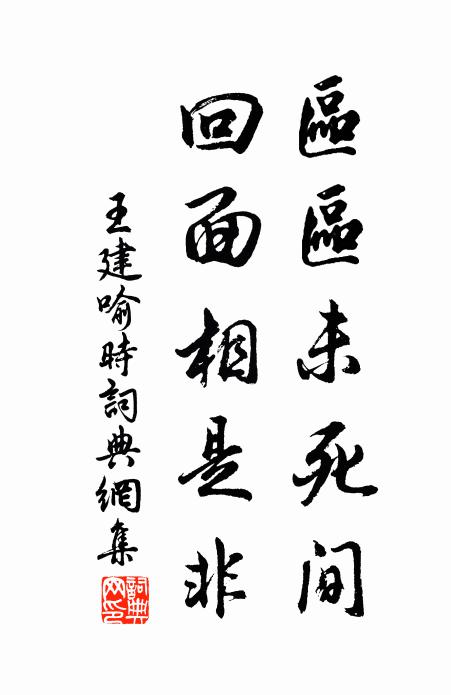 區區未死間
回面相是非
王建喻時詞典網集
詞典網印